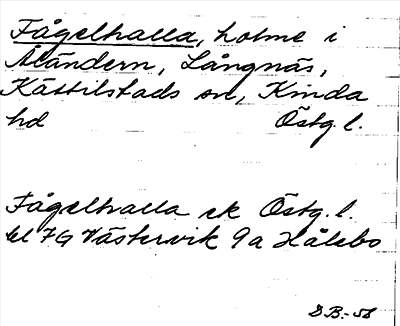 Fågelhalla, holme i
Åländern, Långnäs,
Kättilstads sn, Kinda
hd Östg. l.
Fågelhalla ek Östg. l.
bl 7G Västervik 9a Hålebo
D B.-58